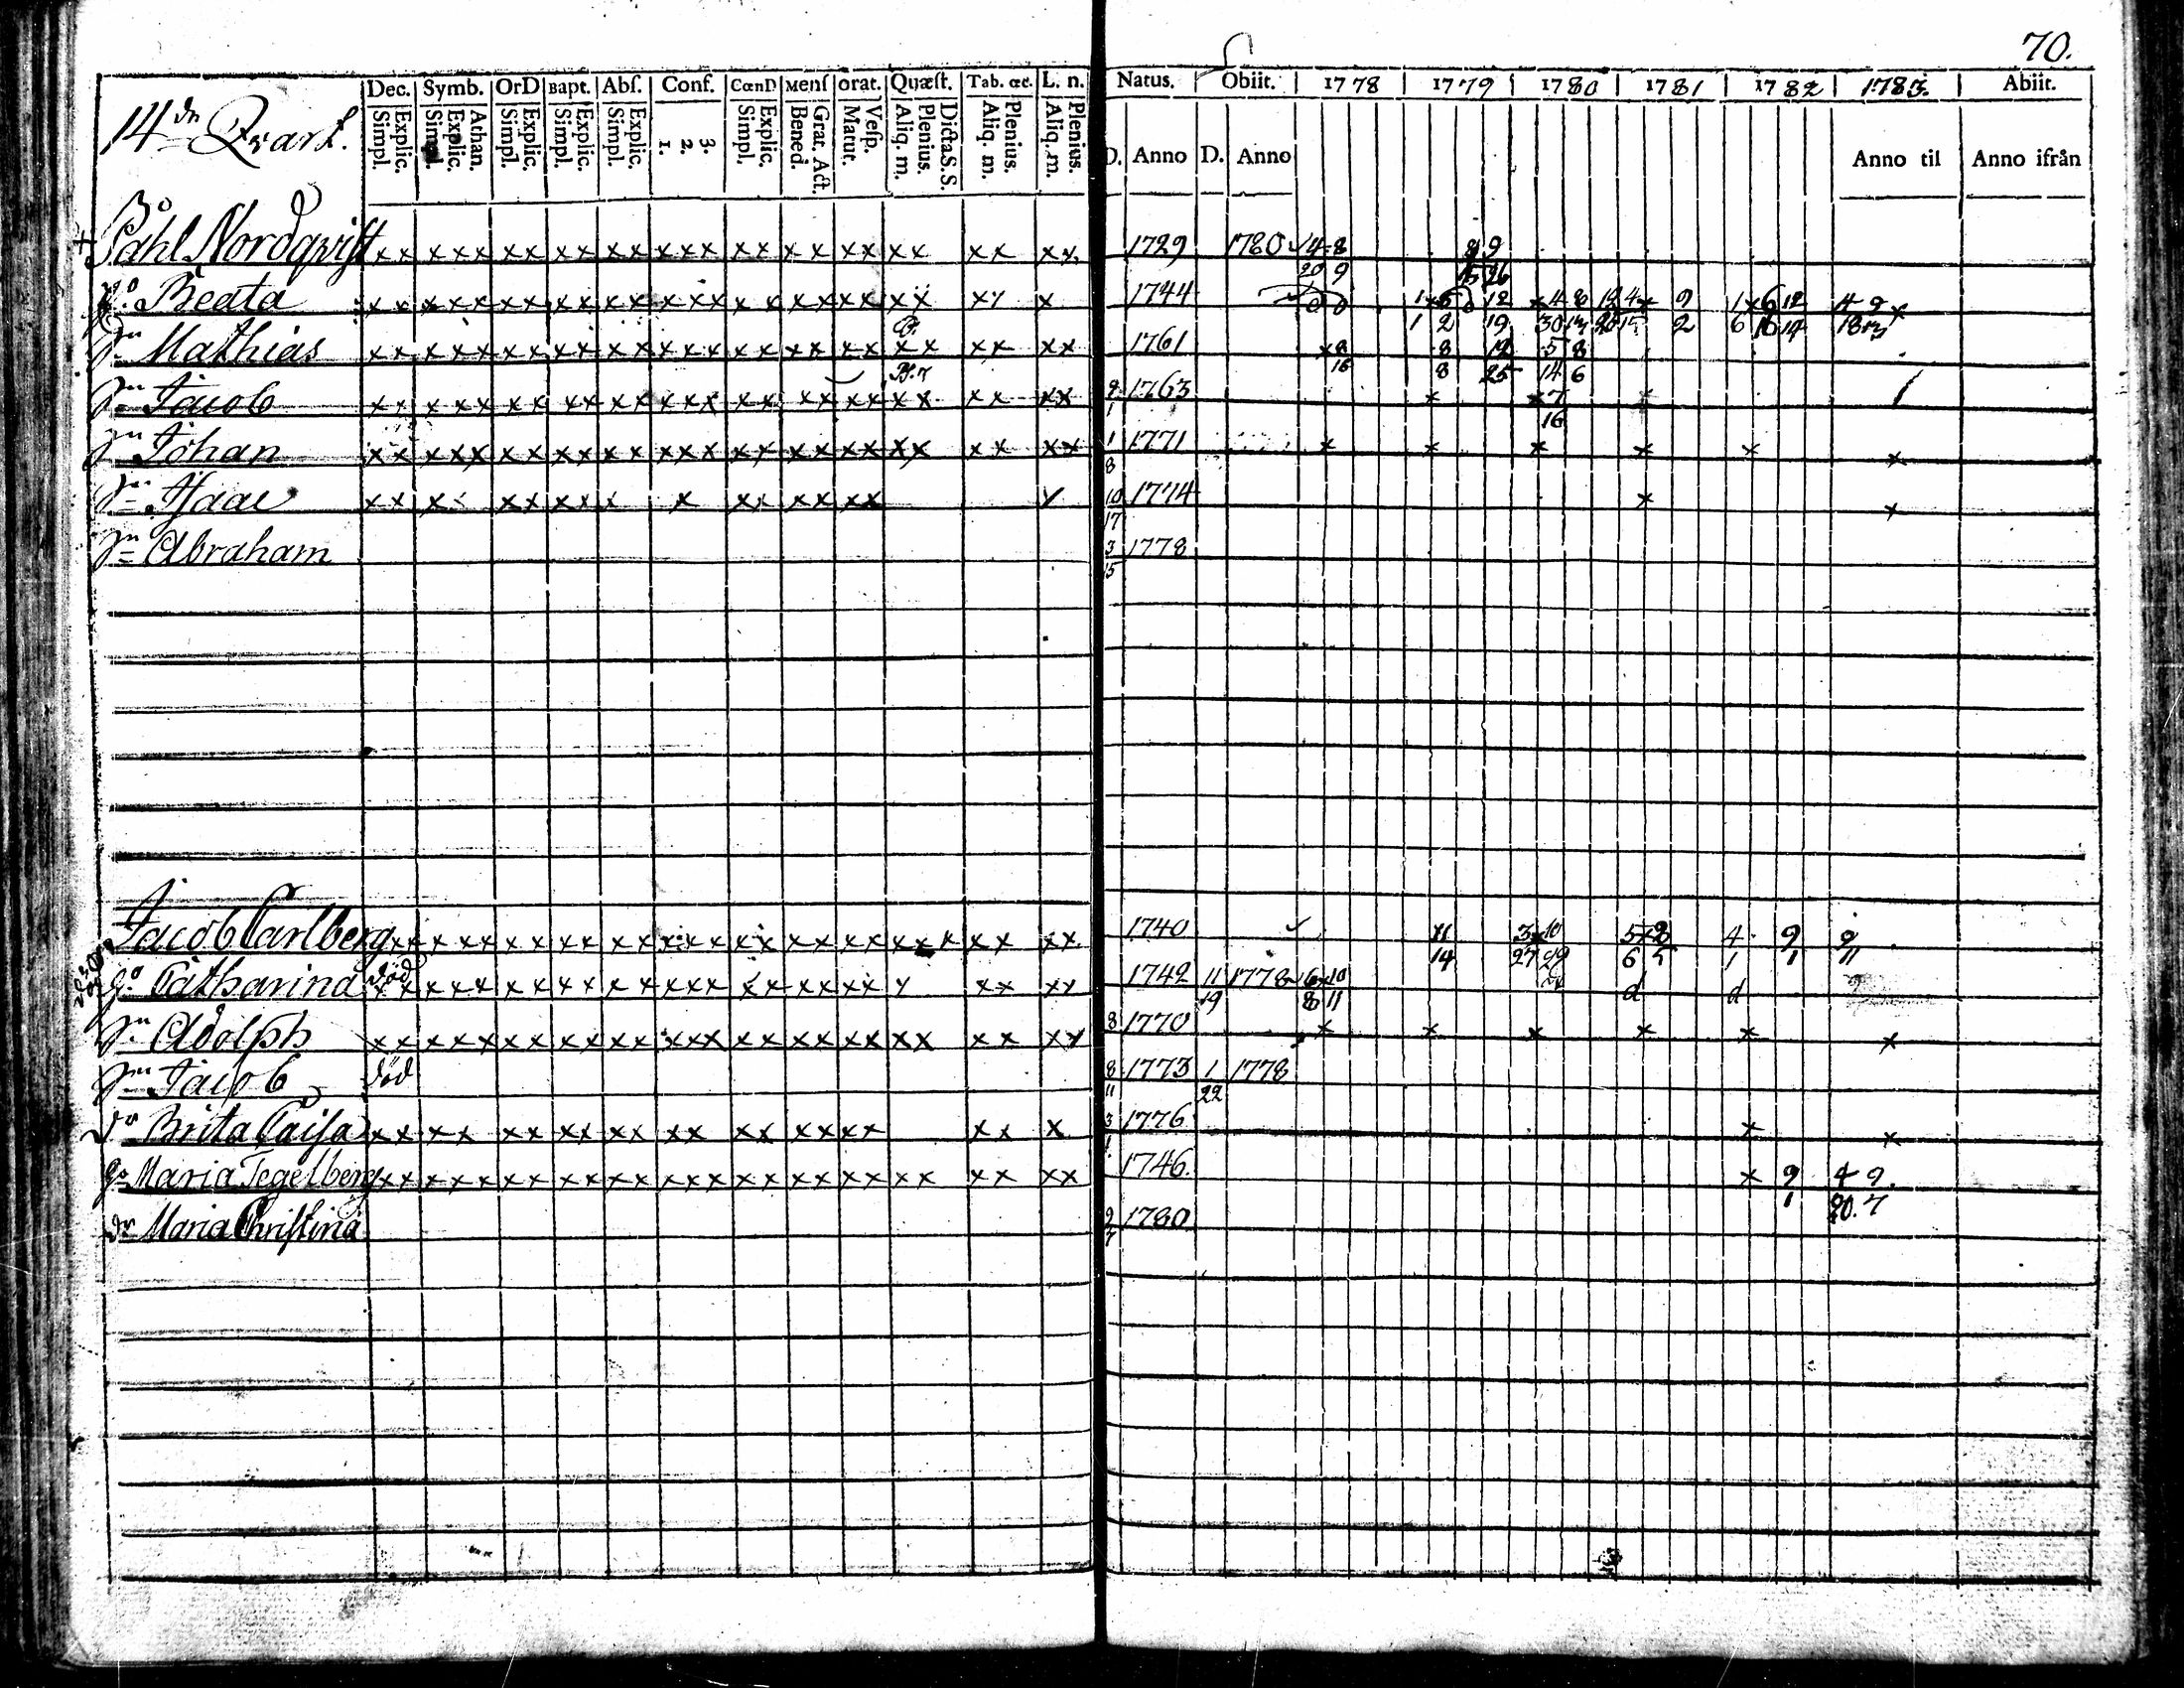 70.
14dn Qvart.
Dec. Symb. OrD Bapt. Abſ. Conf. CœnD Menſ orat. Quæſt. Tab. œc. L. n. Natus. Obiit. 1778 1779 1780 1781 1782 1783. Abiit.
Simpl. Explic. Simpl. Explic. Athan. Simpl. Explic. Simpl. Explic. Simpl. Explic. 1. 2. 3. Simpl. Explic. Bened. Grat. Act. Matut. Veſp. Aliq. m. Plenius. Dicta S.S. Aliq. m. Plenius. Aliq. m. Plenius. D. Anno D. Anno Anno til Anno ifrån
+ Påhl Nordqviſt x x x x x x x x x x x x x x x x x x x x x x x x x x 1729 1780 4 8 8 9
20 9 15 26
Beata x x x x x x x x x x x x x x x x x x x x x x x x x 1744 12 4 8 12 4 x 9 1 x 6 12 4 9 x
1 2 19 30 13 2 6 16 14
Sn Mathias x x x x x x x x x x x x x x x x x x x x x x x x x x 1761 x 8 8 12 5 8
16 8 25 14 6
Sn Jacob x x x x x x x x x x x x x x x x x x x x x x x x x x 9 1763 x x 7 x
1 16
Sn Johan x x x x x x x x x x x x x x x x x x x x x x x x x x 1 1771 x x x x x x
8
Sn Iſaac x x x x x x x x x x x x x x x x x 10 1774 x x
17
Sn Abraham 3 1778
15
Jacob Carlberg x x x x x x x x x x x x x x x x x x x x x x x x x x x 1740 11 3 x 10 5 x 8 4 9 9
14 27 29 6 5 1 1 11
Catharina död x x x x x x x x x x x x x x x x x x x x x x x x x 1742 11 1778 6 x 10 d d
19 8 11
Sn Adolph x x x x x x x x x x x x x x x x x x x x x x x x x x 8 1770 x x x x x x
Sn Jacob död 8 1773 1 1778
11 22
Dr Brita Caiſa x x x x x x x x x x x x x x x x x x x x x 3 1776 x x
1
Maria Tegelberg x x x x x x x x x x x x x x x x x x x x x x x x x x 1746. x 9 4 9.
1 20. 7
dr Maria Chriſtina 2 1780
7